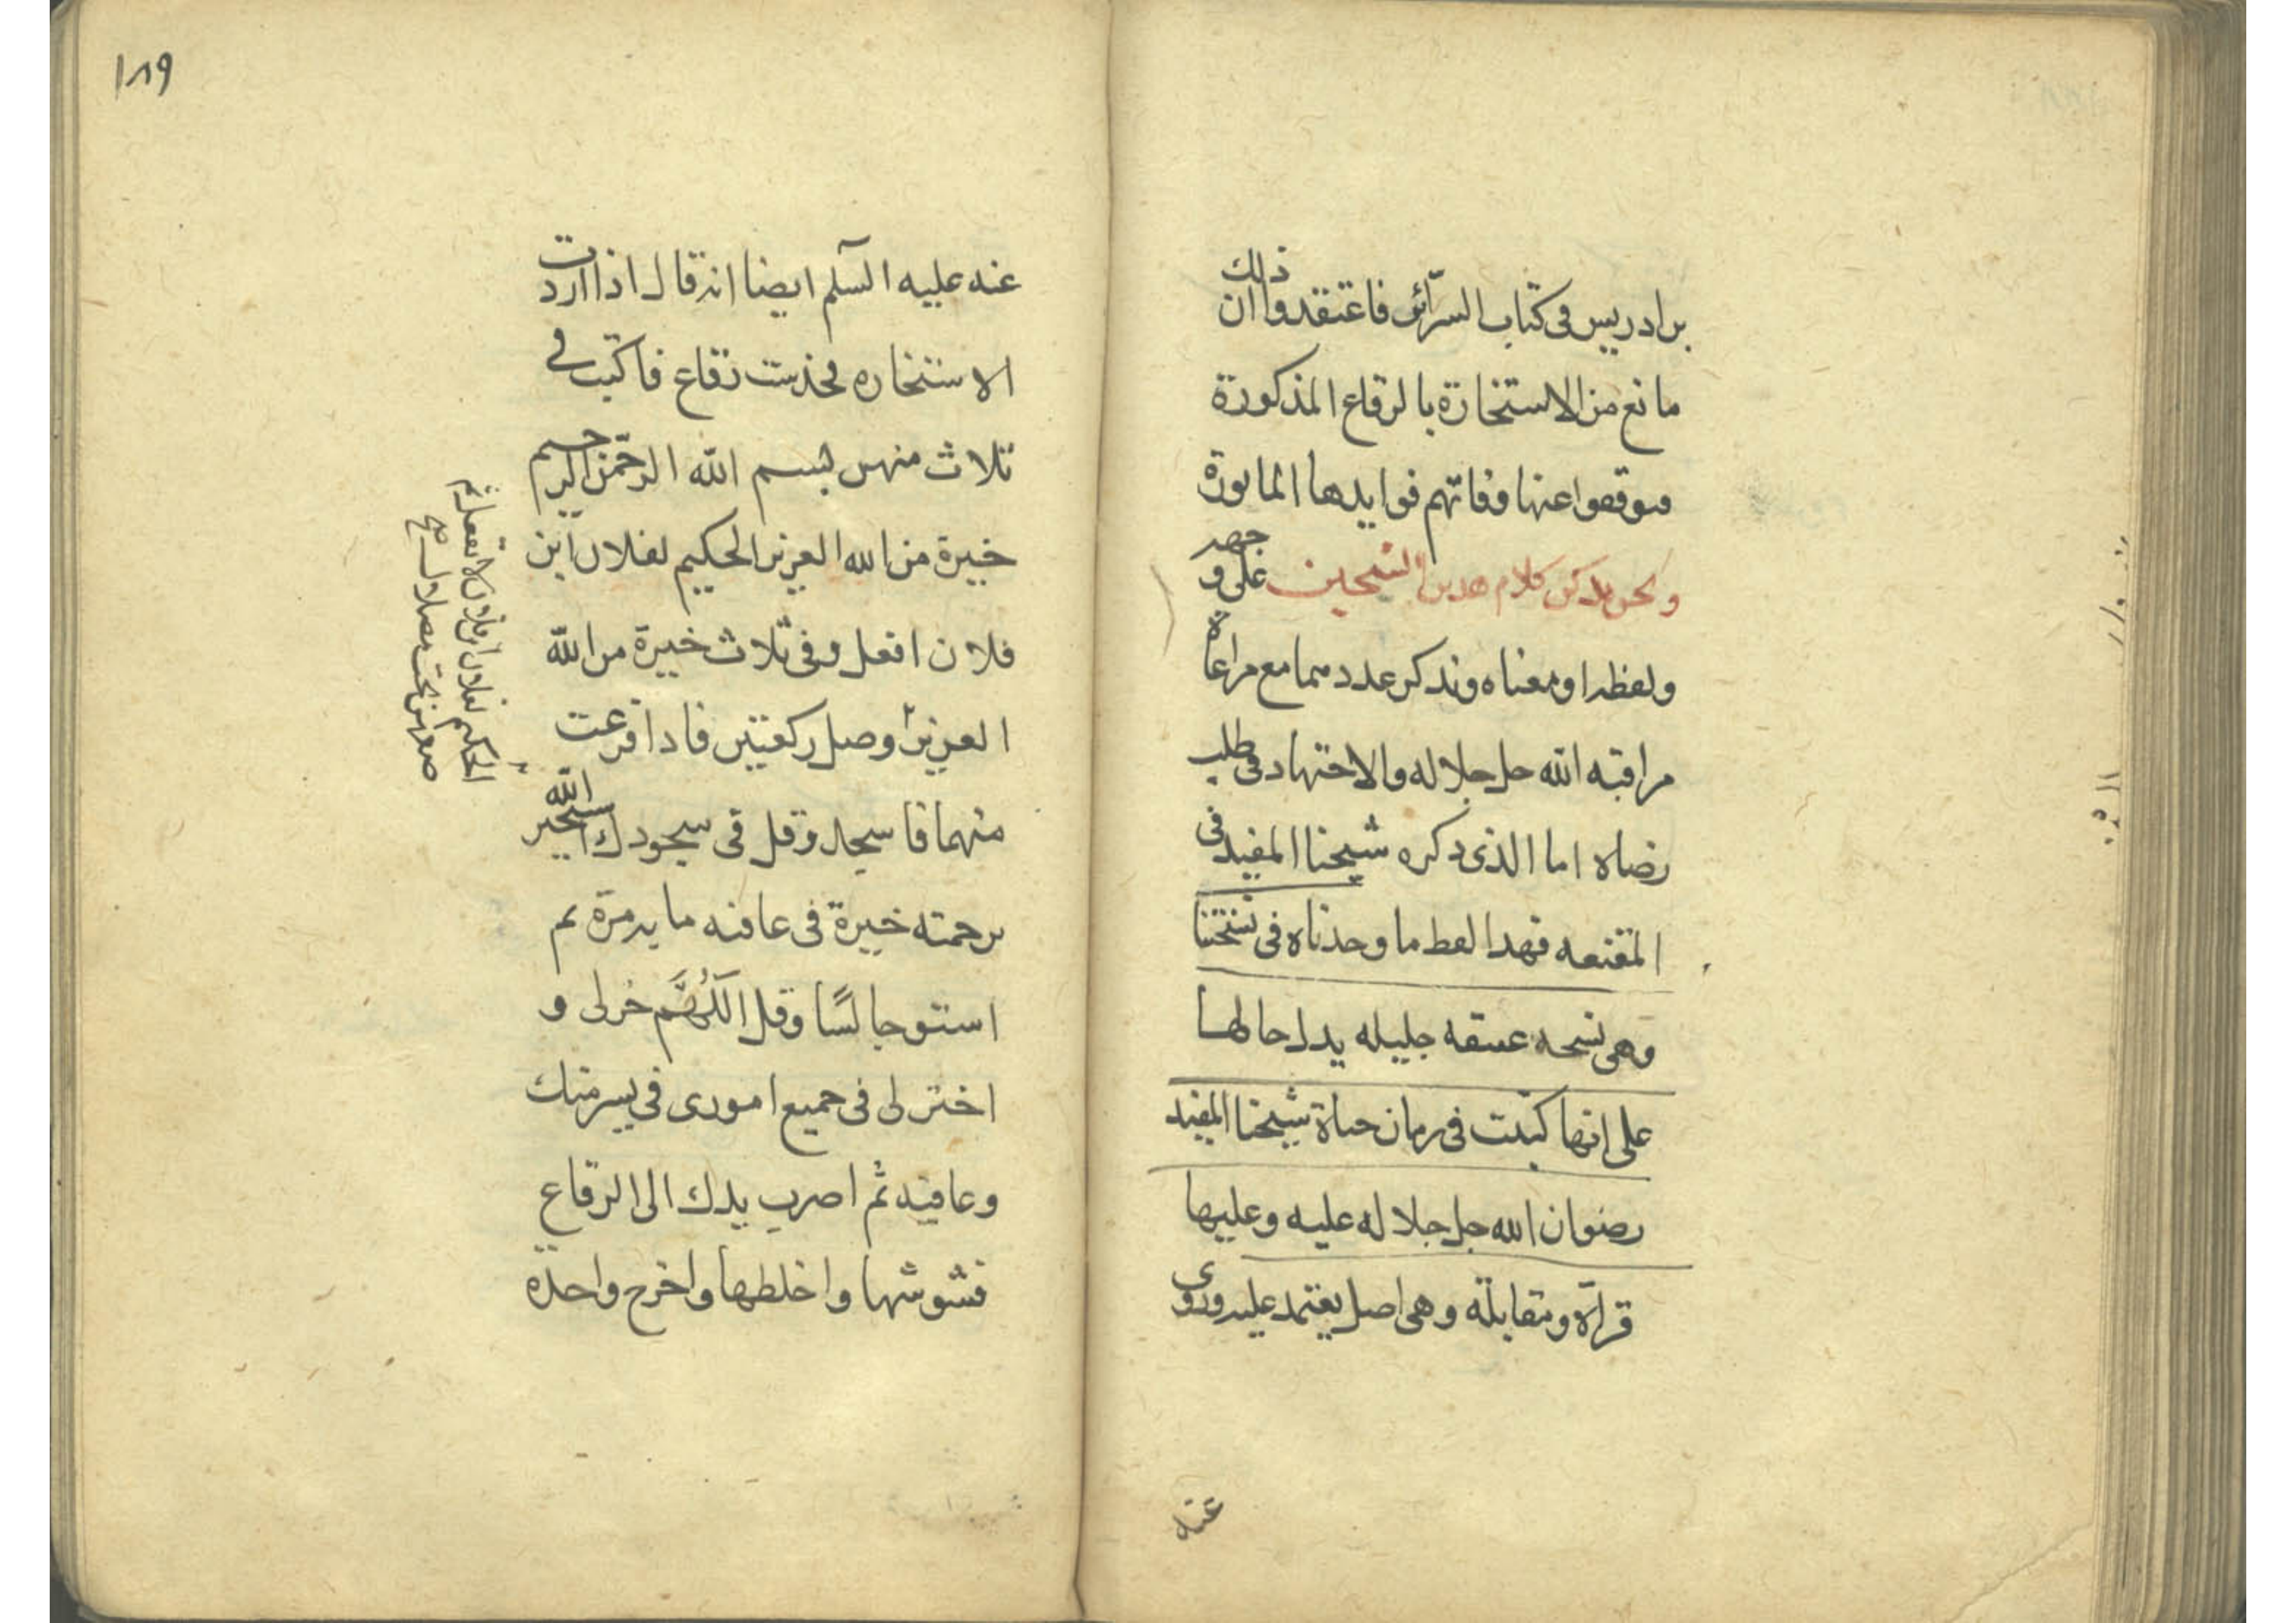 بن ادريس فى كتاب السرّائر فاعتقدوا ان ذلك
مانع من الاستخارة بالرقاع المذكورة
فتوقفوا عنها وفاتهم فوايدها الماثورة
ونحن نذكر كلام هذين الشيخين على وجهه
ولفظه او معناه ونذكر مع مراعاة
مراقبه الله جل جلاله والاجتهاد فى طلب
رضاه اما الذى ذكره شيخنا المفيد فى
المقنعه فهذا لفظ ما وجدناه فى نسختنا
وهى نسخه عتيقه جليله يدل حالها
على انها كتبت فى زمان حياة شيخنا المفيد
رضوان الله جل جلاله عليه وعليها
قرآة ومقابلة وهى اصل يعتمد عليه وروى
عنه
١٨٩
عنه عليه السلم ايضا انه قال اذا اردت
الاستخاره فخذ ست رقاع فاكتب فے
ثلاث منهن بسم الله الرحمن الرحيم
خيرة من الله العزيز الحكيم لفلان ابن
فلان افعل وفى ثلاث خيرة من الله
العزيز وصل ركعتين فاذا فرغت
منهما فاسجد وقل فى سجودك استخير الله
برحمته خيرة فى عافيه ماية مرة ثم
استو جالسًا وقل اللَّهُمَّ خر لى و
اختر لى فى جميع امورى فى يسر منك
وعافيه ثم اضرب يدك الى الرقاع
فشوشها واخلطها واخرج واحدة
الحكيم لفلان ابن فلان لا تفعل ثم
ضعهن تحت مصلاك صح